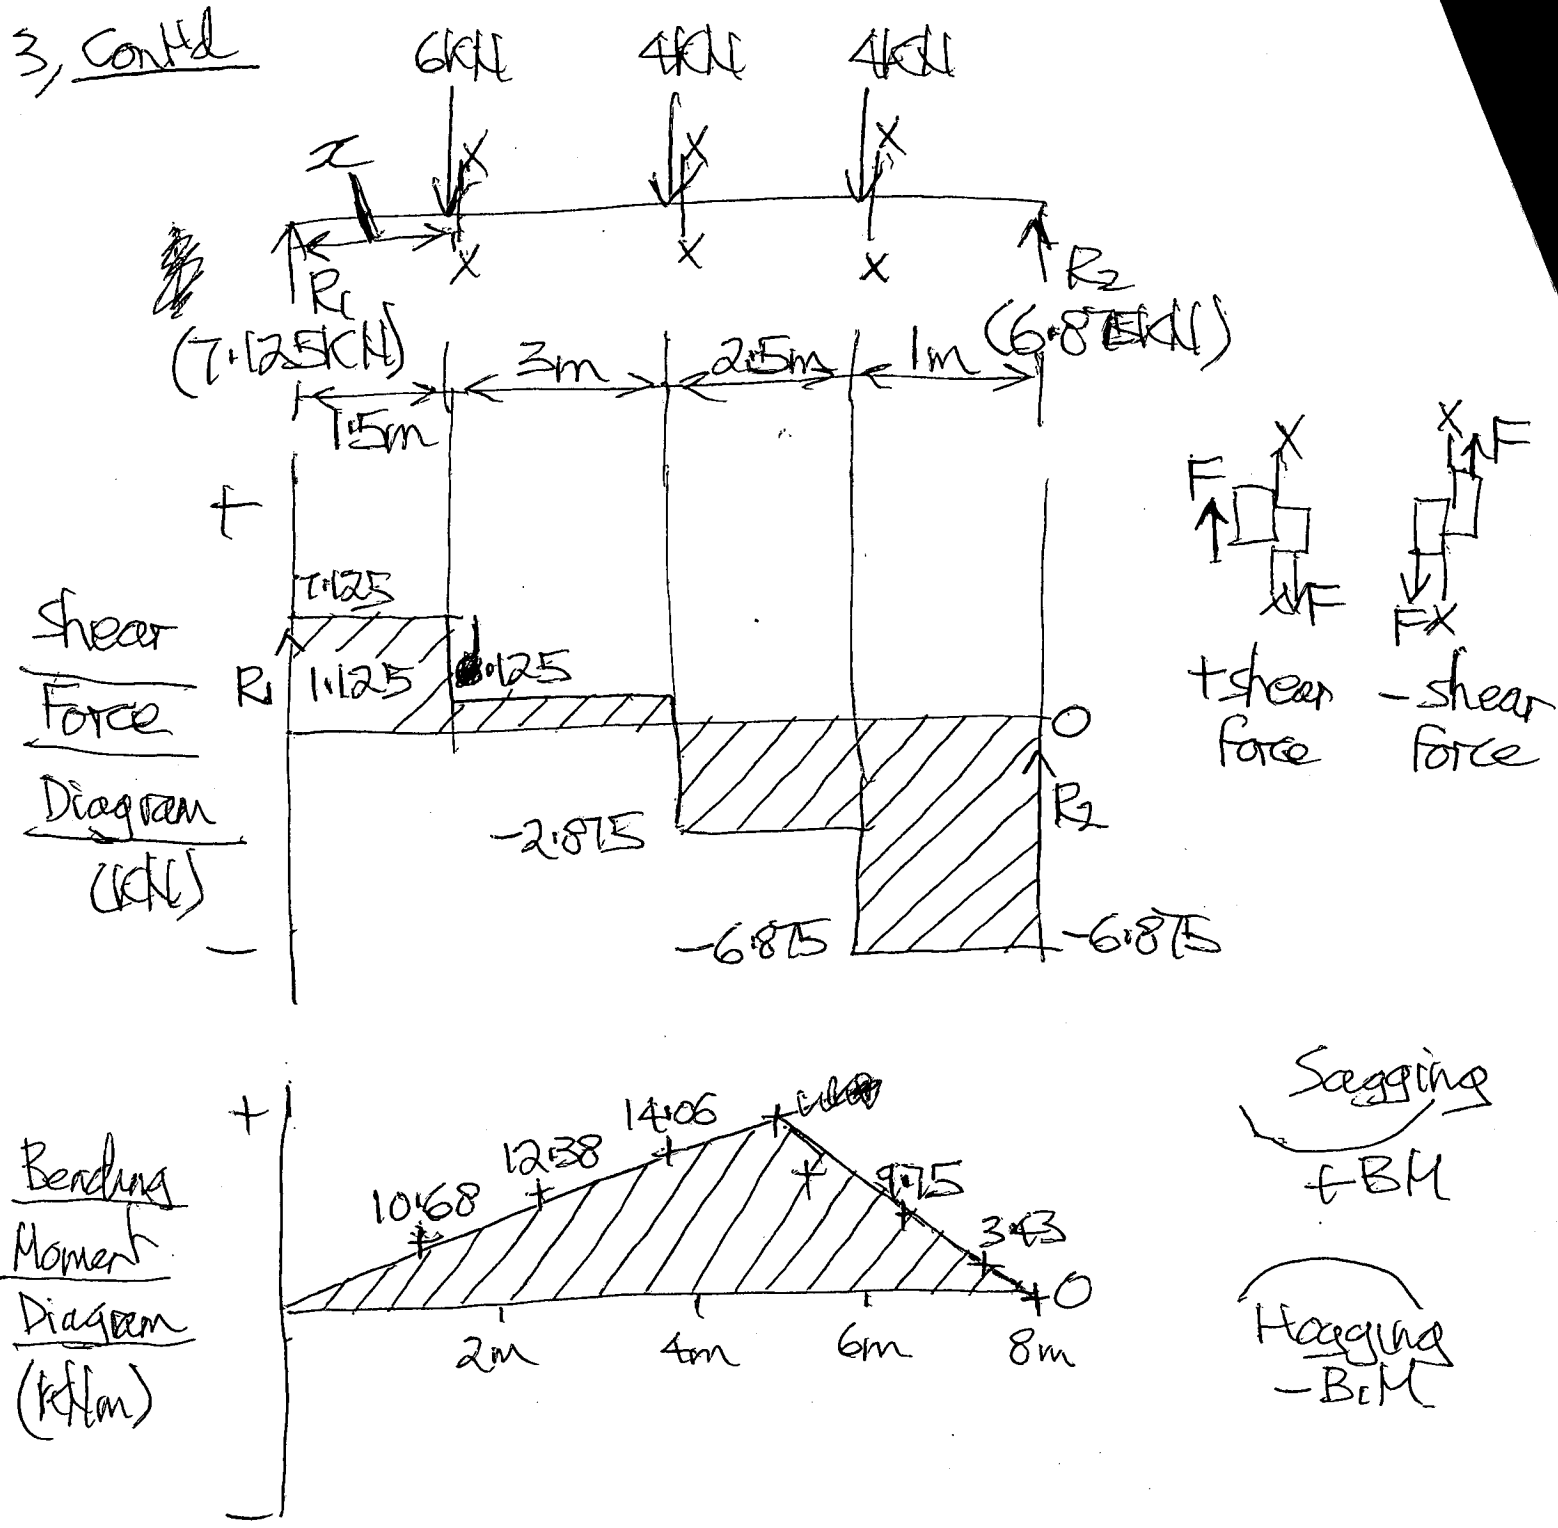 3, Contd
6KN 4KN 4KN
x X X X
X X X
R1 R2
(7.125KN) (6.875KN)
1.5m 3m 2.5m 1m
+
Shear
Force
Diagram
(KN)
−
7.125
R1 1.125 .125
0
R2
-2.875
-6.875 -6.875
X F
X F
+shear
force
X F
F X
- shear
force
+
Bending
Moment
Diagram
(KNm)
−
10.68 12.38 14.06 9.75 3.43 0
2m 4m 6m 8m
Sagging
+BM
Hogging
-B.M